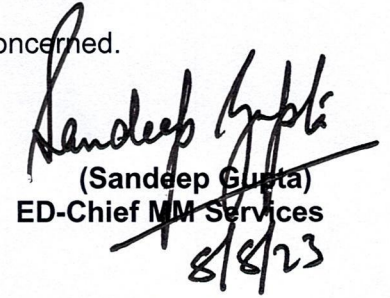 oncerned.
Sandeep Gupta
(Sandeep Gupta)
ED-Chief MM Services
8/8/23